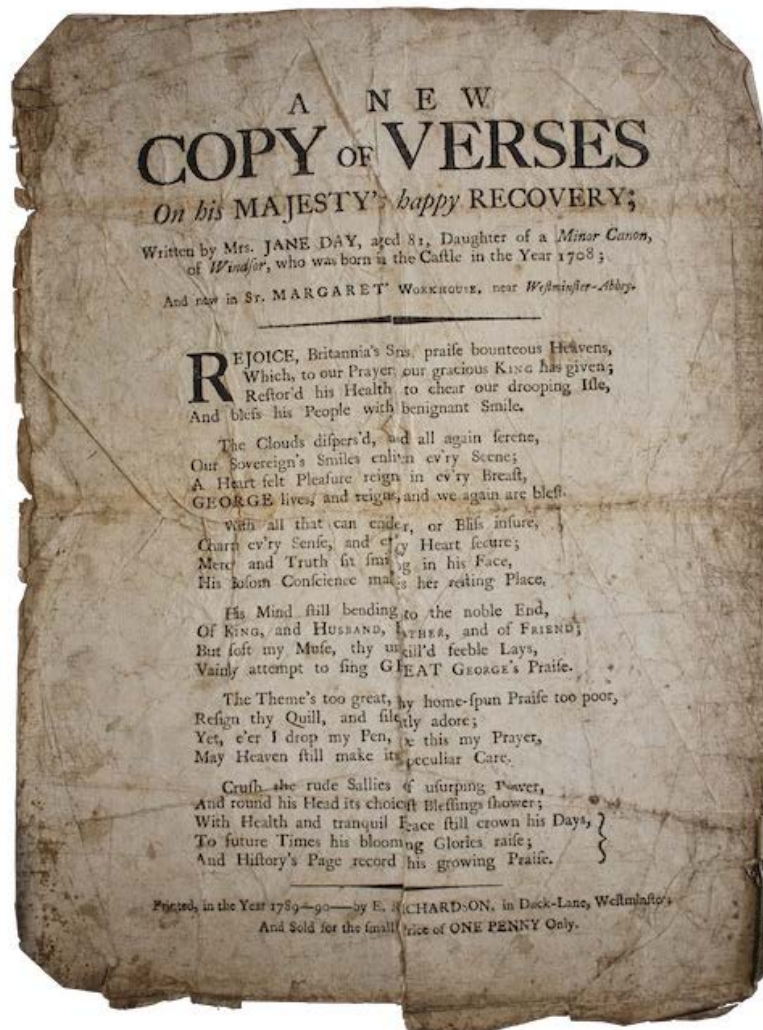 A NEW
COPY OF VERSES
On his MAJESTY's happy RECOVERY;
Written by Mrs. JANE DAY, aged 81, Daughter of a Minor Canon,
of Windſor, who was born in the Caſtle in the Year 1708;
And now in ST. MARGARET' WORKHOUSE, near Weſtminſter-Abbey.
REJOICE, Britannia's Sns, praiſe bounteous Heavens,
Which, to our Prayer, our gracious KING has given;
Reſtor'd his Health to chear our drooping Iſle,
And bleſs his People with benignant Smile.
The Clouds diſpers'd, and all again ſerene,
Our Sovereign's Smiles enliven ev'ry Scene;
A Heart felt Pleaſure reign in ev'ry Breaſt,
GEORGE lives, and reigns, and we again are bleſt.
With all that can ender, or Bliſs inſure,
Charm ev'ry Senſe, and ev'ry Heart ſecure;
Mercy and Truth ſit ſmiling in his Face,
His Boſom Conſcience makes her reſting Place.
His Mind ſtill bending to the noble End,
Of KING, and HUSBAND, FATHER, and of FRIEND;
But ſoft my Muſe, thy unſkill'd feeble Lays,
Vainly attempt to ſing GREAT GEORGE's Praiſe.
The Theme's too great, thy home-ſpun Praiſe too poor,
Reſign thy Quill, and ſilently adore;
Yet, e'er I drop my Pen, be this my Prayer,
May Heaven ſtill make its peculiar Care.
Cruſh the rude Sallies of uſurping Power,
And round his Head its choiceſt Bleſſings ſhower;
With Health and tranquil Peace ſtill crown his Days,
To future Times his blooming Glories raiſe;
And Hiſtory's Page record his growing Praiſe.
Printed, in the Year 1789—90—by E. RICHARDSON, in Duck-Lane, Weſtminſter;
And Sold for the ſmall Price of ONE PENNY Only.